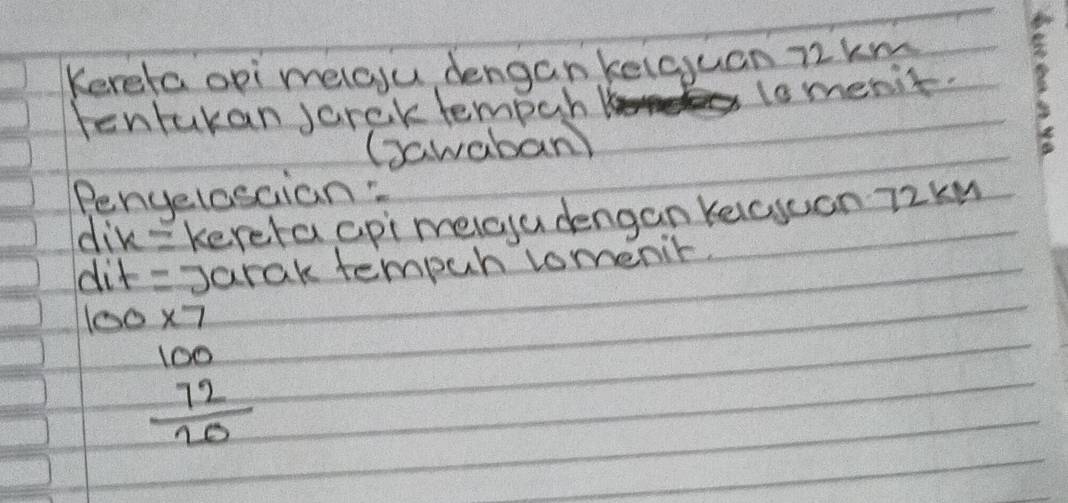 Kereta api melaju dengan kelajuan 72 km
tentukan Jarak tempuh 10 menit.
(Jawaban)
Penyelosaian =
dik = kereta api melaju dengan kelajuan 72 KM
dit = Jarak tempuh 10 menit.
100 x 7
100
72
20